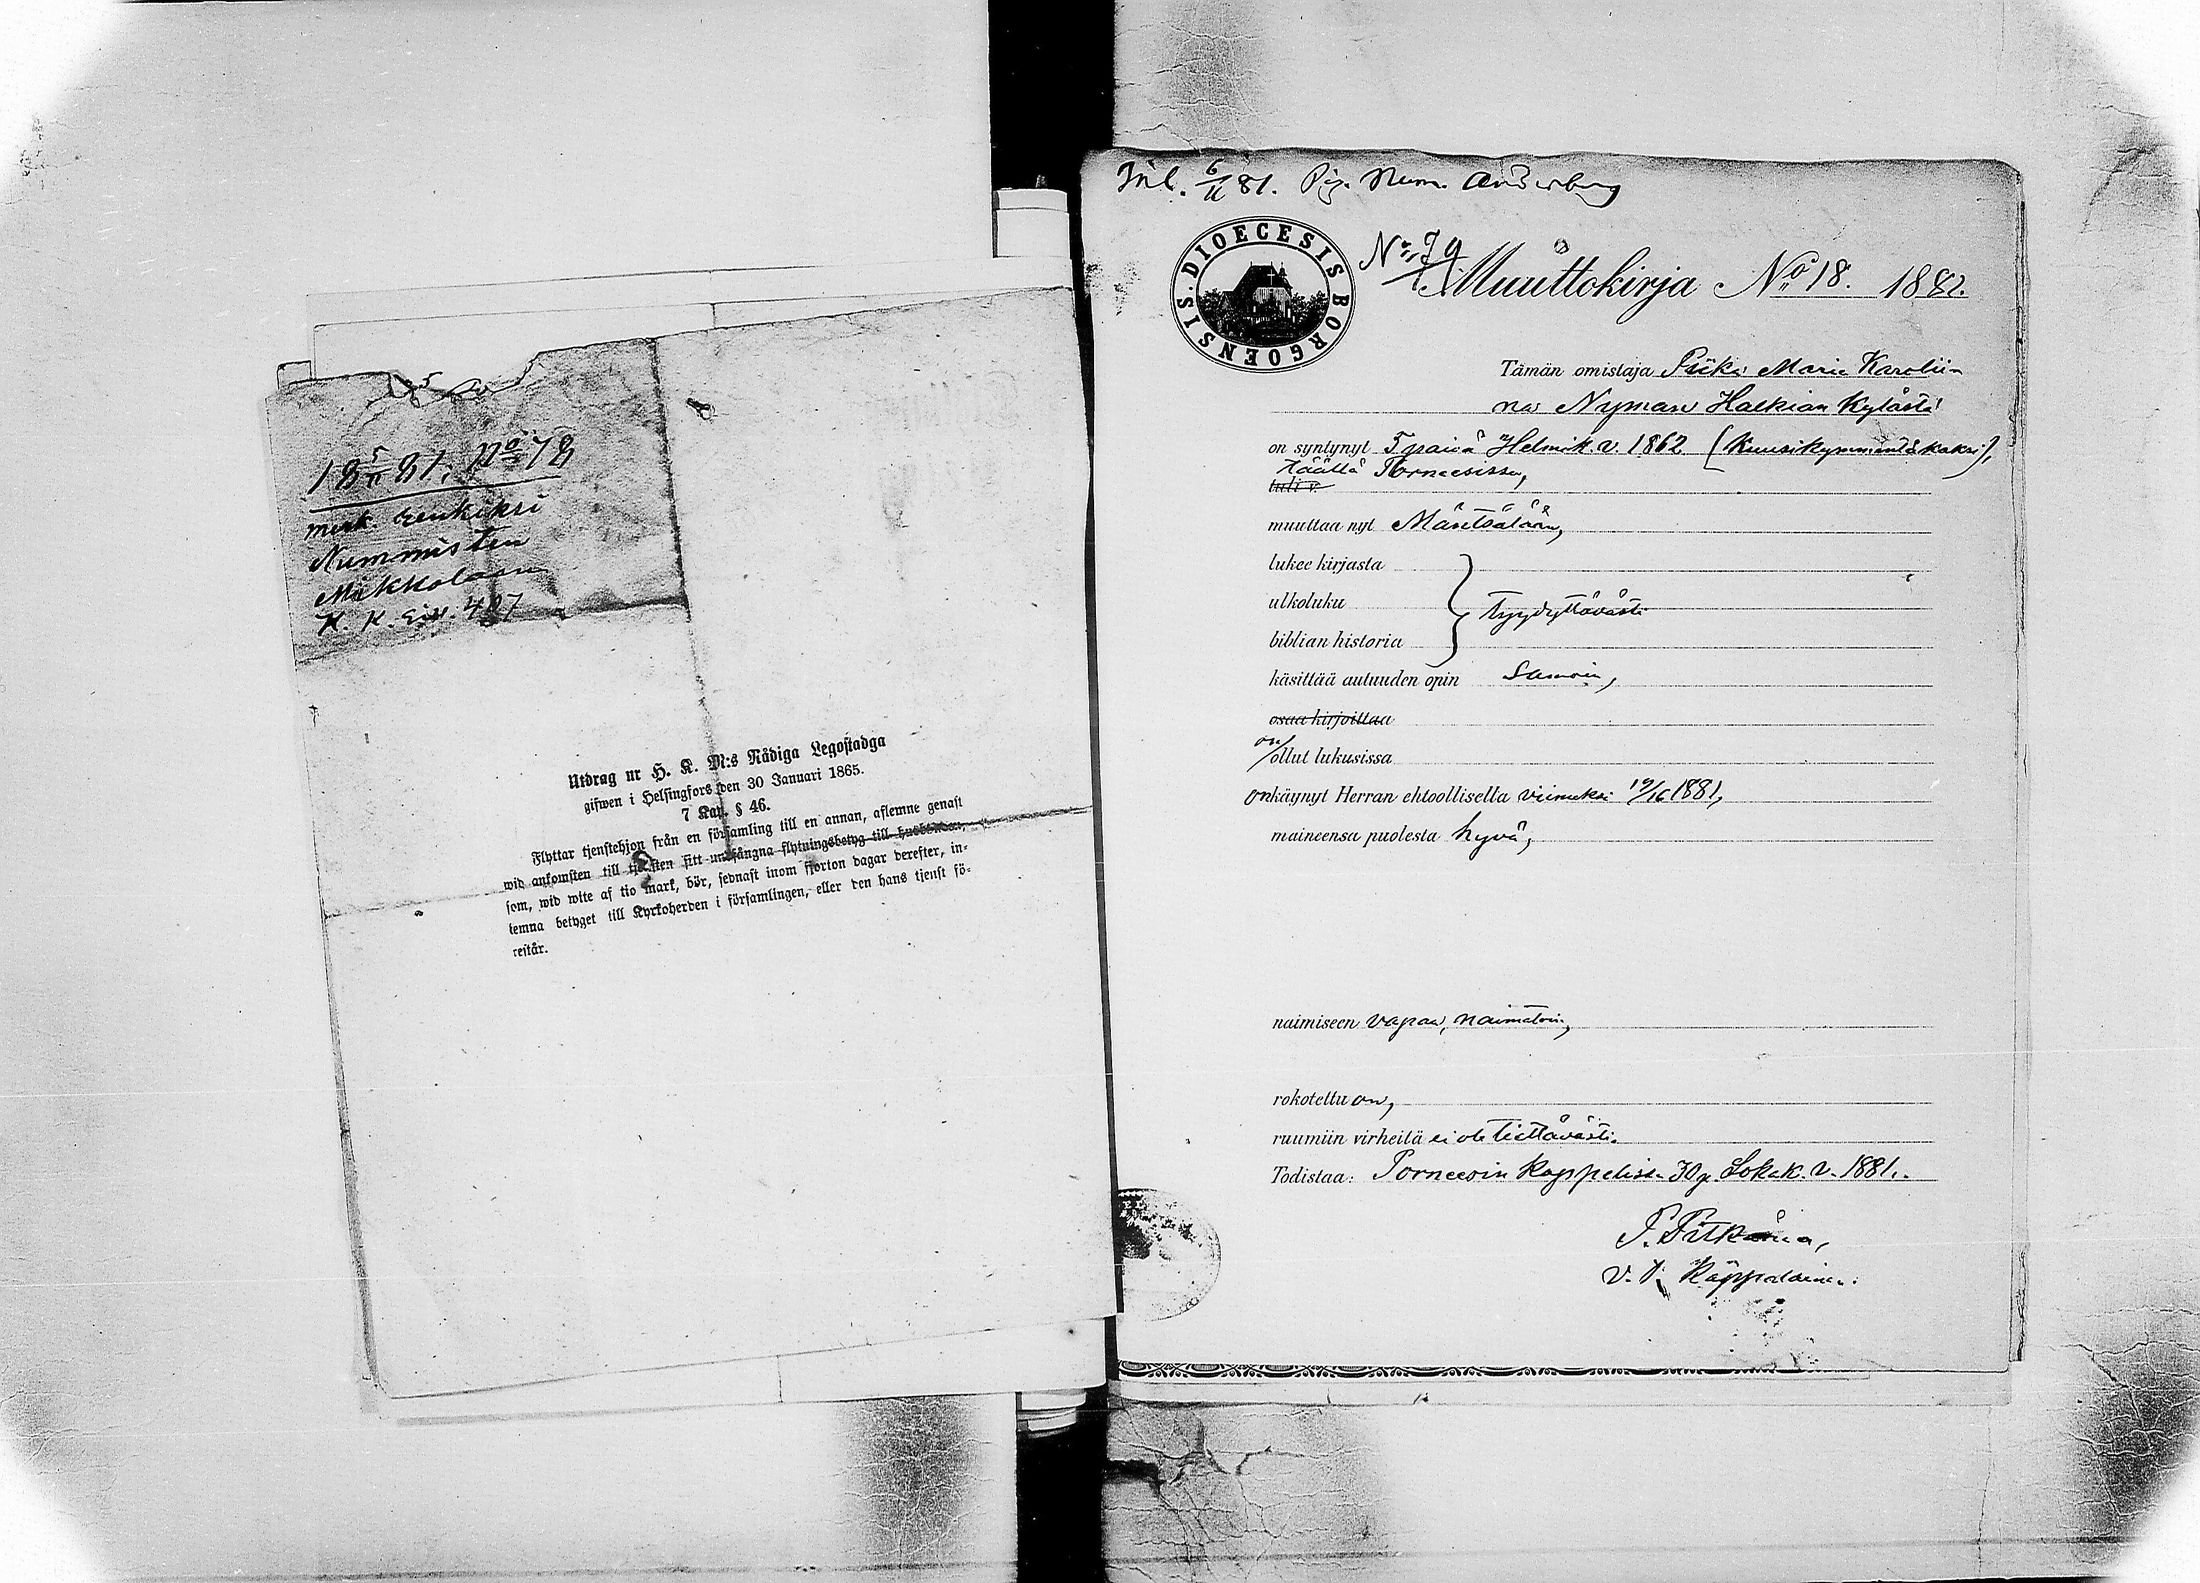 18 5/11 81. No 78
merk. renkiksi
Nummisten
Mikkolaan
K. K. siv. 407
Utdrag ur H. K. M:s Nådiga Legostadga
gifwen i Helsingfors den 30 Januari 1865.
7 Kap. § 46.
Flyttar tjenstehjon från en församling till en annan, aflemne genast
wid ankomsten till tjensten sitt undfångna flytningsbetyg till husbonden,
som, wid wite af tio mark, bör, sednast inom fjorton dagar derefter, in-
lemna betyget till Kyrkoherden i församlingen, eller den hans tjenst fö-
restår.
Inl. 6/11 81. Pig. Num. Anderberg
DIOECESIS BORGOENSIS.
No 79
Muuttokirja No 18. 1881.
Tämän omistaja Piika Maria Karolii-
na Nyman Halkian kylästä
on syntynyt 7 päivä Helmik. v. 1862 (kuusikymmentäkaksi),
täällä Pornaisissa,
tuli v.
muuttaa nyt Mäntsälään,
lukee kirjasta
ulkoluku } tyydyttävästi
biblian historia
käsittää autuuden opin Samoin,
osaa kirjoittaa
on ollut lukusissa
on käynyt Herran ehtoollisella viimeksi 19/16 1881,
maineensa puolesta hyvä,
naimiseen vapaa, naimatoin,
rokotettu on,
ruumiin virheitä ei ole tiettävästi.
Todistaa: Porneesin kappelissa 30 p. Lokak. v. 1881.
P. Pitkänen,
v. t. Kappalainen.